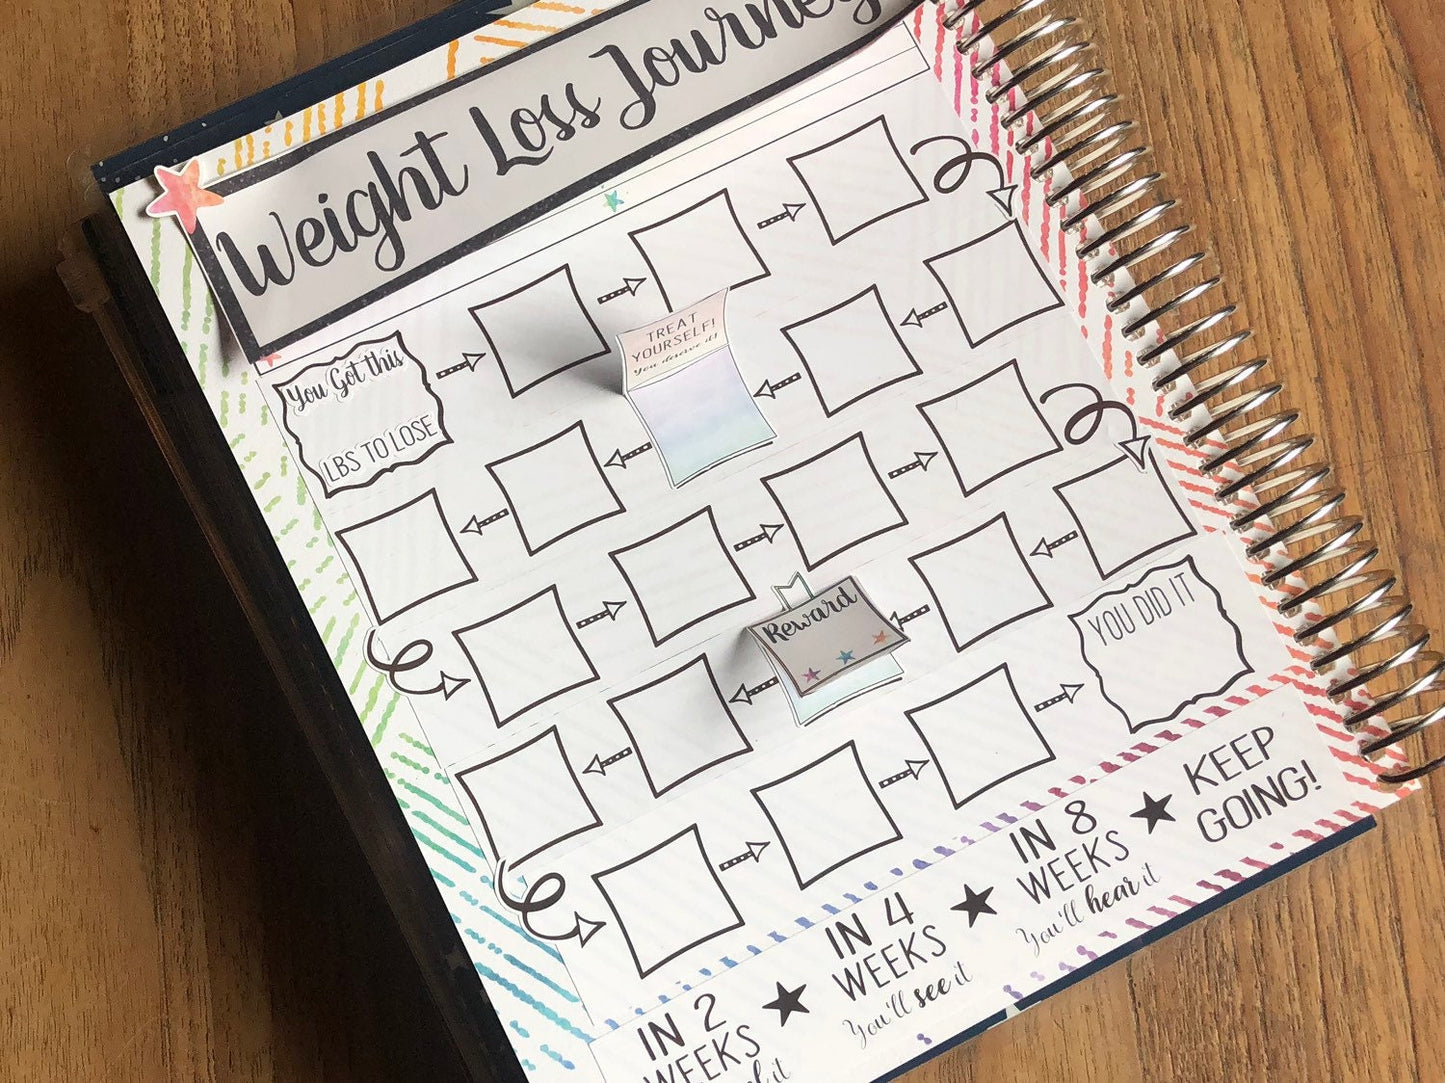 Weight Loss Journey
You Got this
LBS TO LOSE
TREAT
YOURSELF!
You deserve it!
Reward
YOU DID IT
IN 2
WEEKS
it
IN 4
WEEKS
You'll see it
IN 8
WEEKS
You'll hear it
KEEP
GOING!